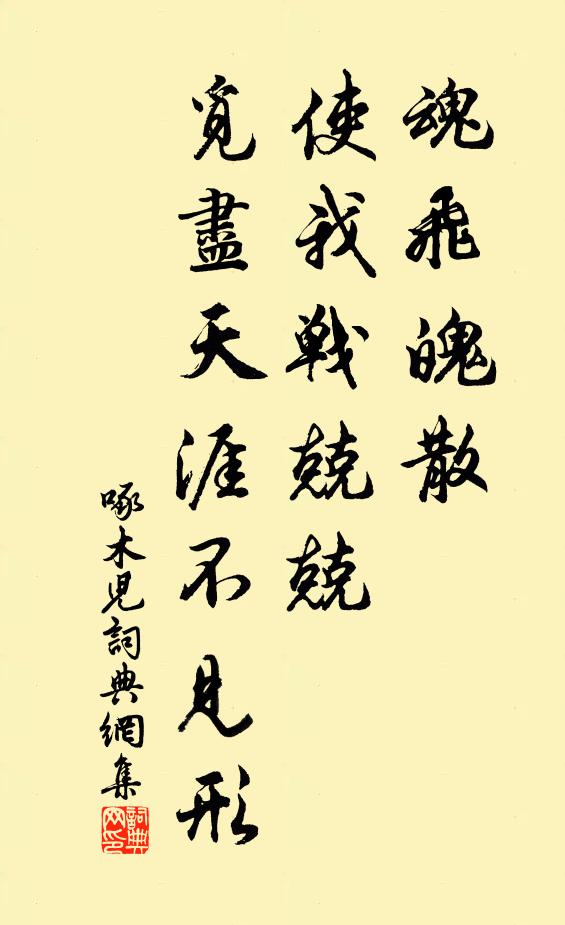 魂飛魄散
使我戰兢兢
覓盡天涯不見形
啄木兒詞典網集
詞典網印